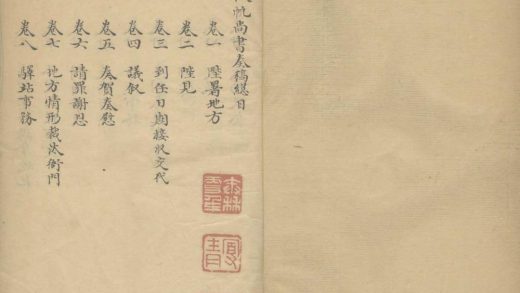 帆尚書奏稿總目
卷一 陞署地方
卷二 陛見
卷三 到任日期接收交代
卷四 議叙
卷五 奏賀奏慰
卷六 請罪謝恩
卷七 地方情形裁汰衙門
卷八 驛站市務